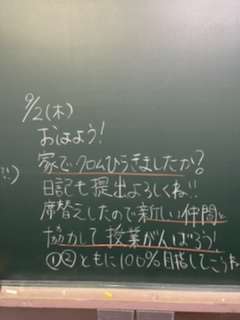 9/2(木)
おはよう!
家でクロムひらきましたか?
日記も提出よろしくね!!
席替えしたので新しい仲間と
協力して授業がんばろう!
①②ともに100%目指してこうね